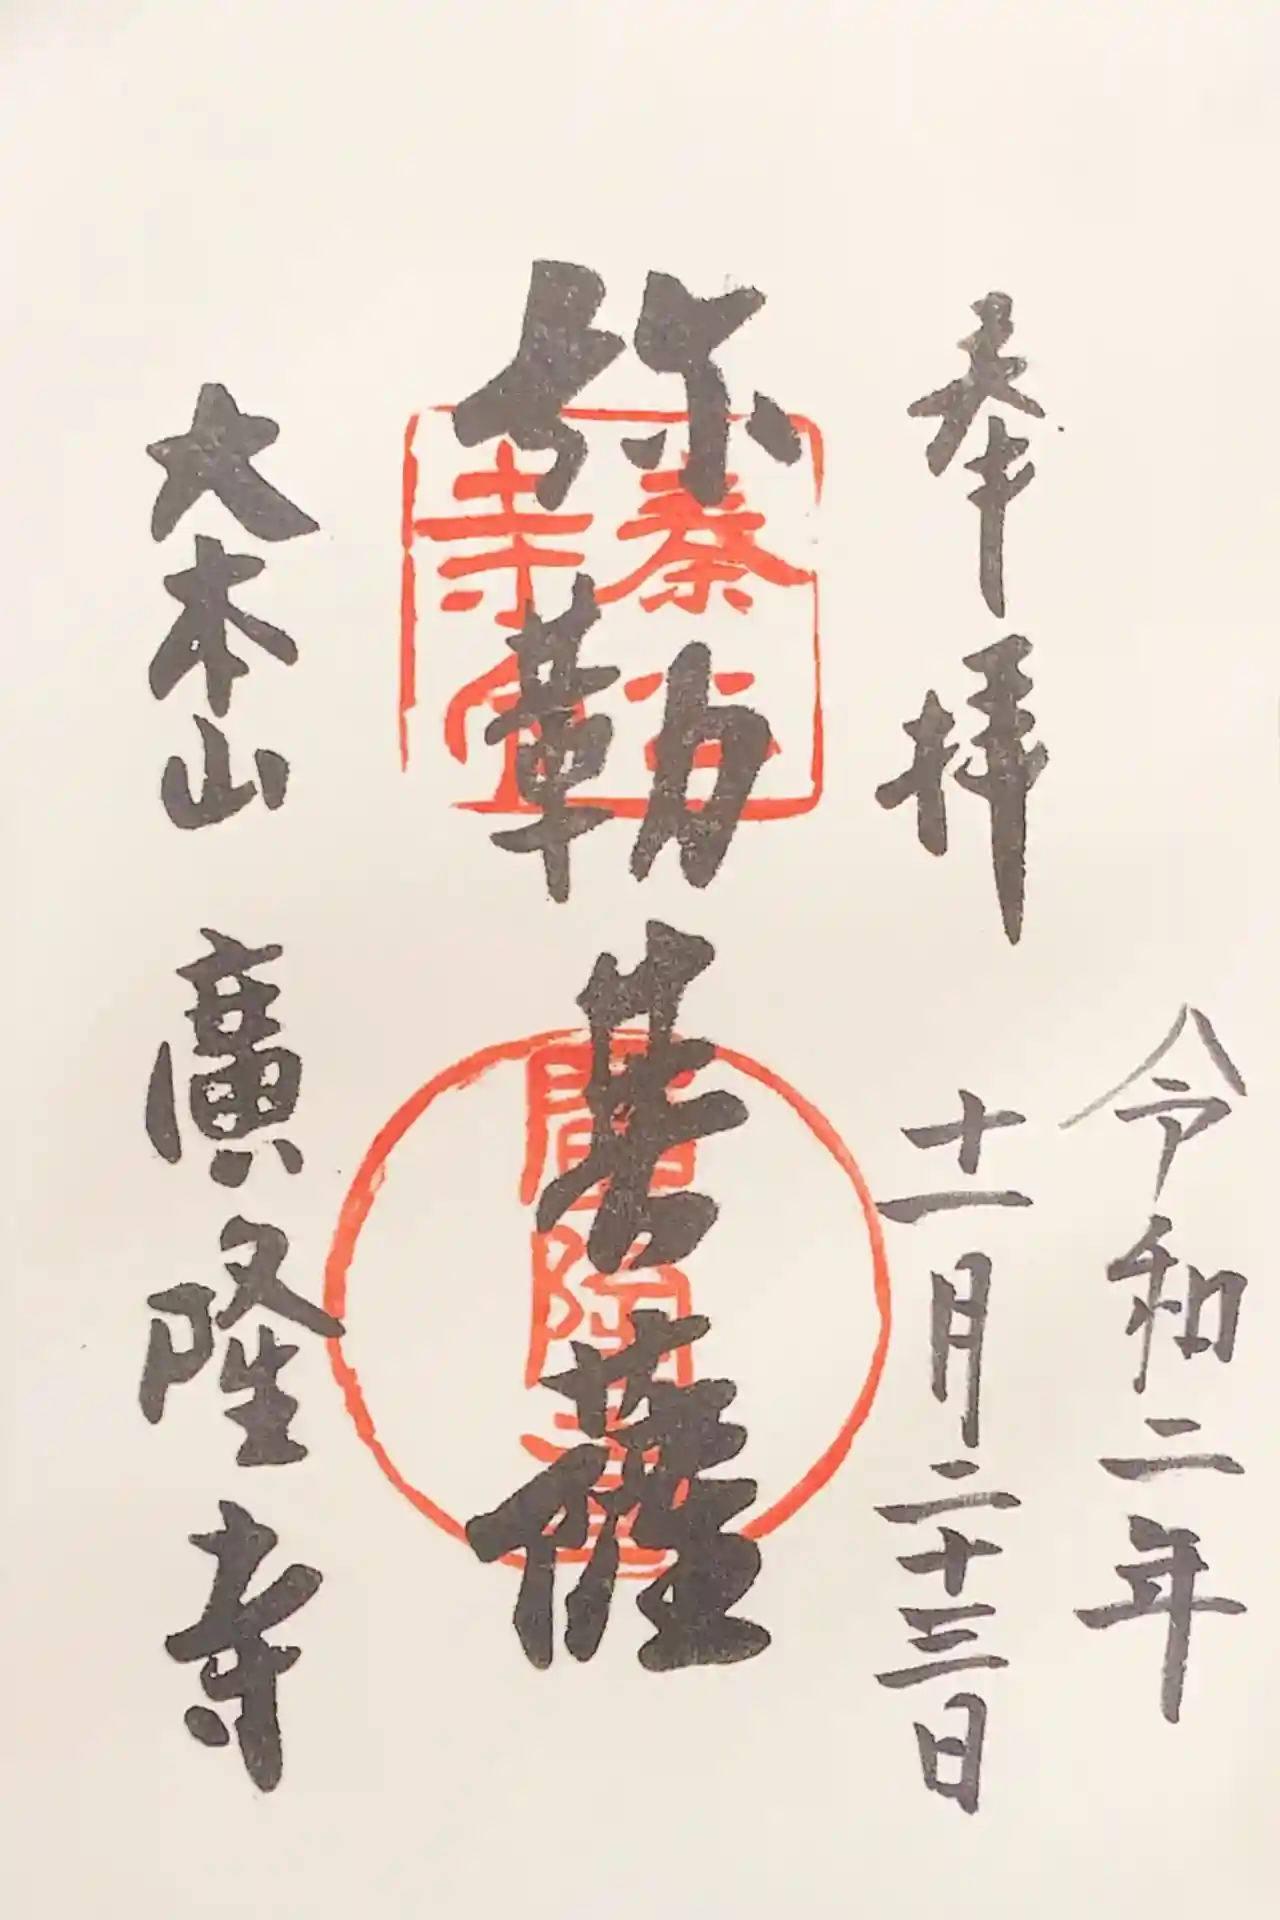 令和二年
奉拝
十一月二十三日
弥勒菩薩
大本山
廣隆寺